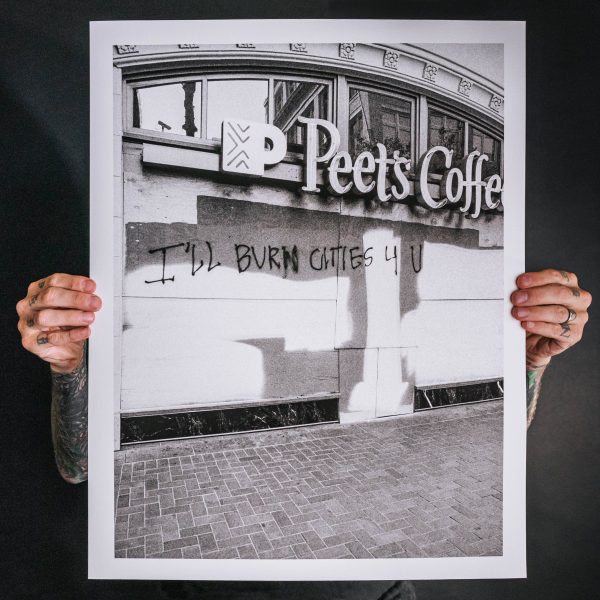 P Peet's Coffee
I'LL BURN CITIES 4 U